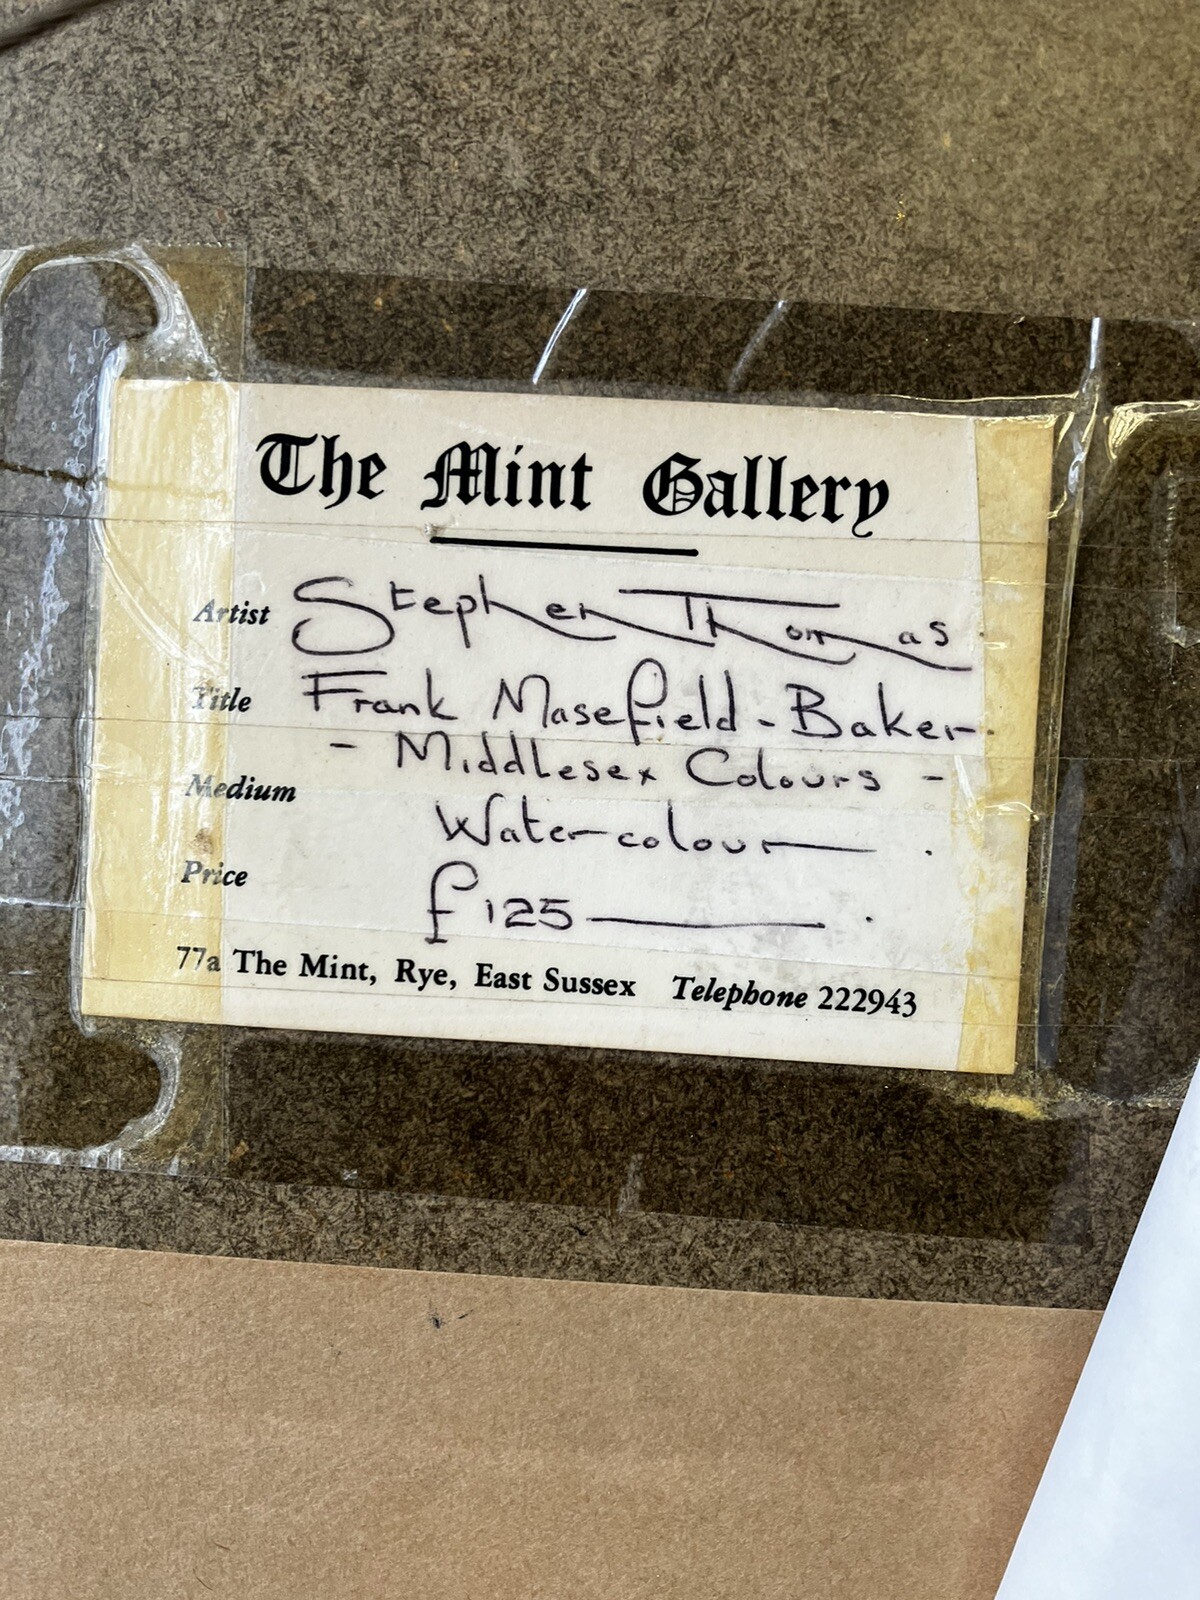 The Mint Gallery
Artist Stephen Thomas
Title Frank Masefield-Baker.
- Middlesex Colours -
Medium Watercolour.
Price £125.
77a The Mint, Rye, East Sussex Telephone 222943